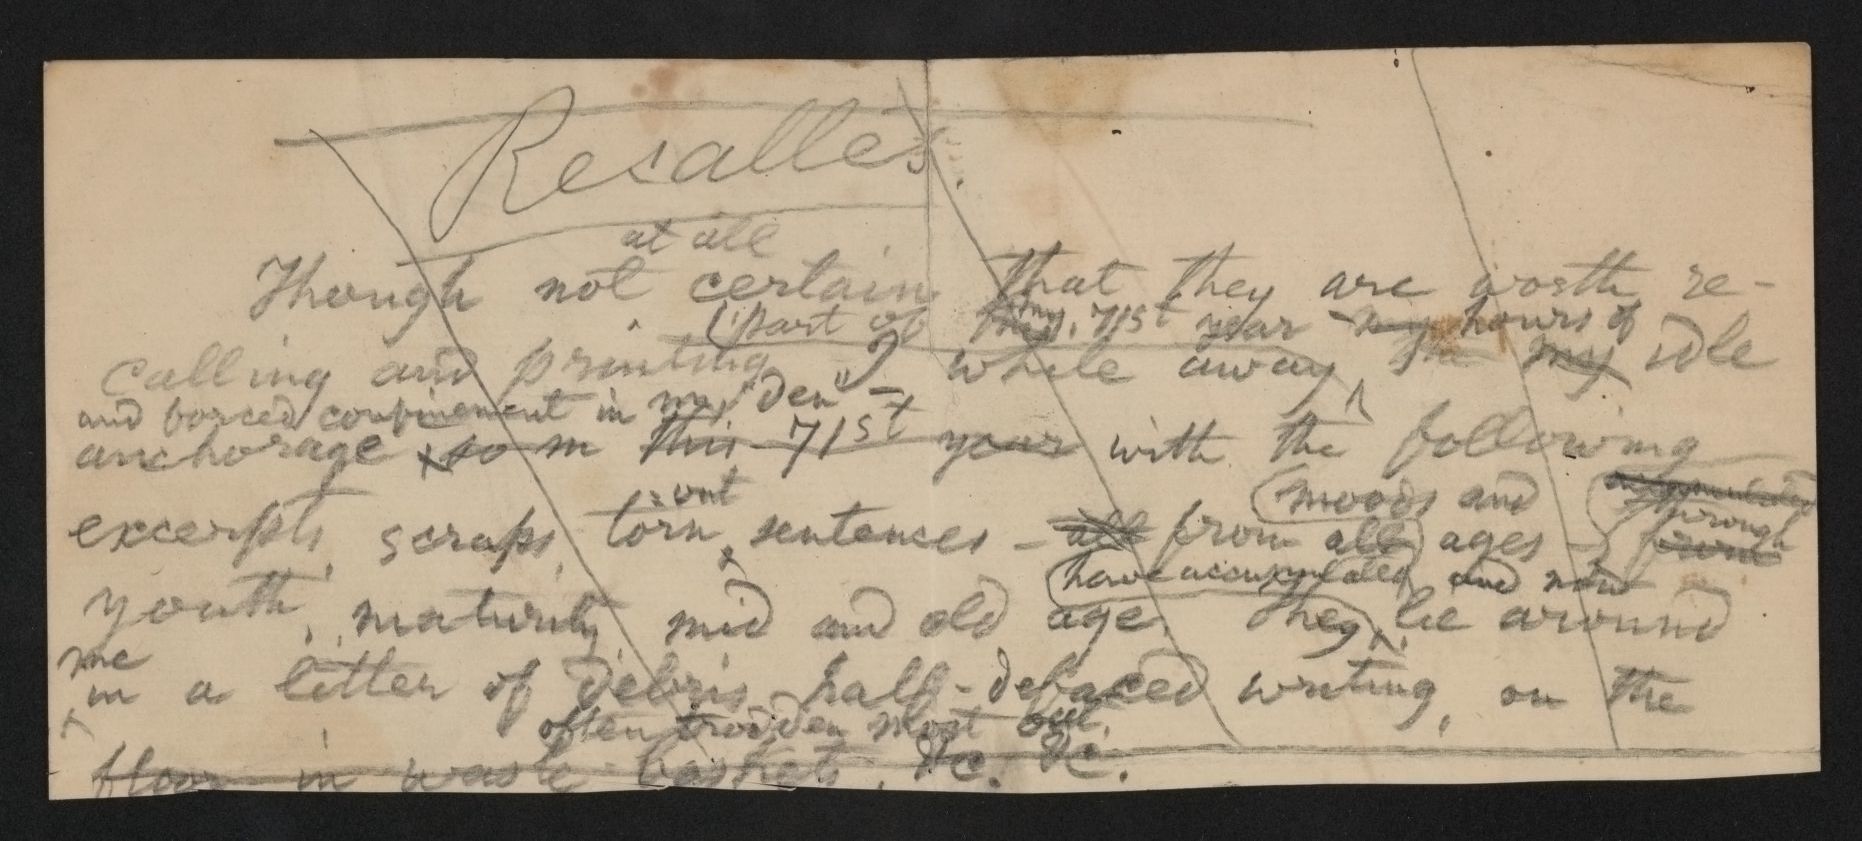 Resalles.
at all
Though not certain that they are worth re-
(part of my 71st year my hours of
calling and printing I while away my idle
and forced confinement in my "den" —
anchorage so in this 71st year with the following
out moods and
excerpts, scraps, torn sentences — all from all ages — through from
have accumulated and now
youth, maturity mid and old age. They lie around
me
in a litter of debris half-defaced writing, on the
often trodden most out,
floor in waste baskets, &c. &c.